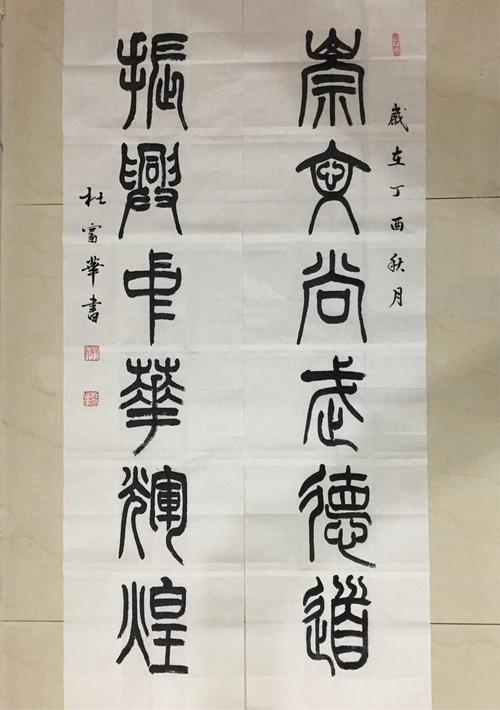 歲在丁酉秋月
崇文尚武德道
振興中華輝煌
杜富華書